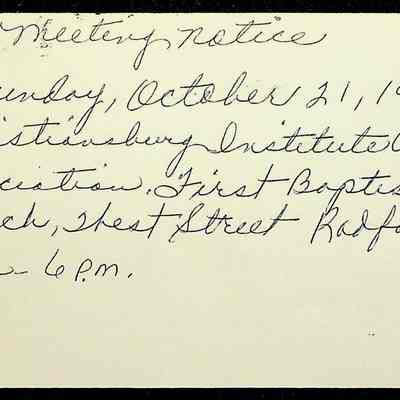 Meeting notice
unday, October 21, 19
istiansburg Institute
ciation. First Baptis
ch, West Street Radfo
6 P.M.